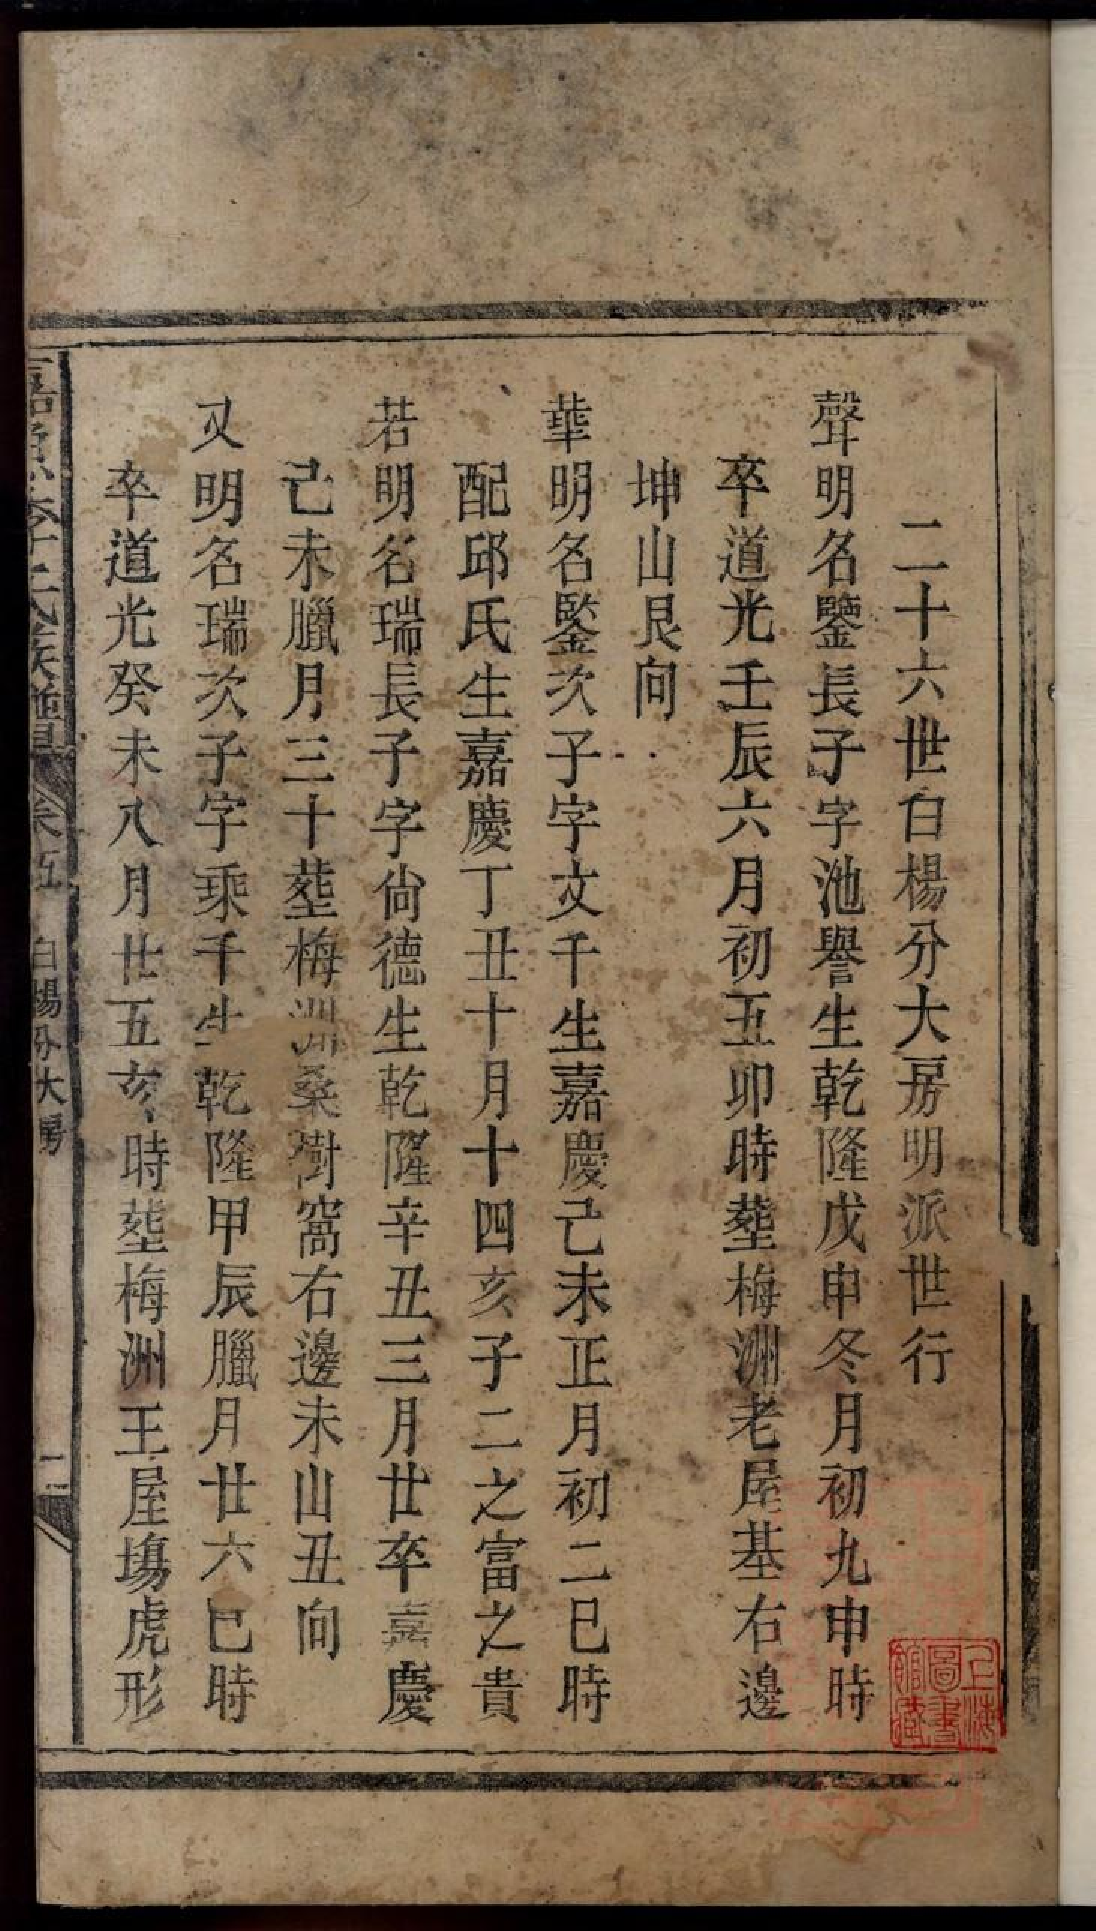 二十六世白楊分大房明派世行
聲明名鑒長子字池譽生乾隆戊申冬月初九申時
卒道光壬辰六月初五卯時塟梅洲老屋基右邊
坤山艮向
華明名鍳次子字文千生嘉慶己未正月初二巳時
配邱氏生嘉慶丁丑十月十四亥子二之富之貴
若明名瑞長子字尙德生乾隆辛丑三月廿卒嘉慶
己未臘月三十塟梅洲桑樹窩右邊未山丑向
又明名瑞次子字乘千生乾隆甲辰臘月廿六巳時
卒道光癸未八月廿五亥時塟梅洲王屋塲虎形
氏族譜 卷五 白楊分大房 二
上海圖書館藏